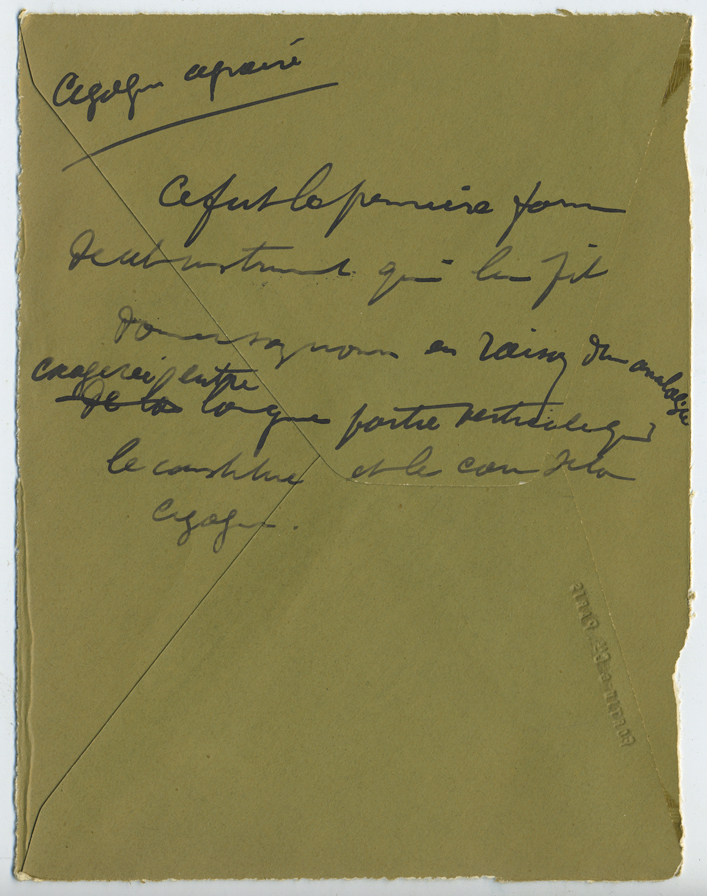 Cigogne
Ce fut la première forme
de cet instrument qui lui fit
donner son nom en raison d'une analogie
exagérée entre
De la longue partie verticale qui
le constitue et le cou de la
Cigogne.